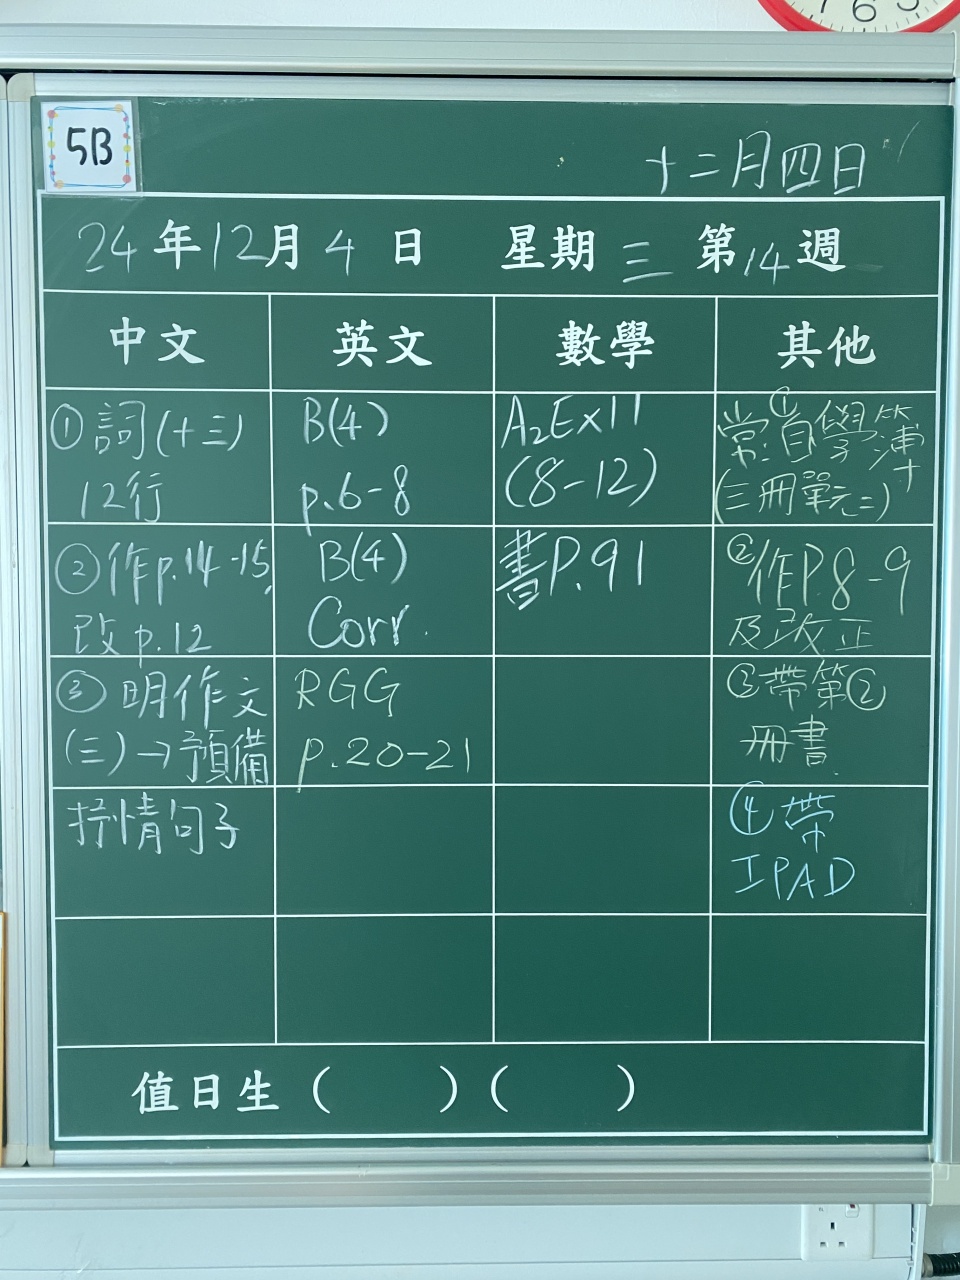 7 6 5
5B
十二月四日
24年12月4日 星期三 第14週
中文 英文 數學 其他
①詞(十三)
12行
B(4)
p.6-8
A₂Ex11
(8-12)
①
常:自學簿
(三冊單元二)
②作p.14-15,
改p.12
B(4)
Corr.
書P.91
②作P.8-9
及改正
③明作文
(三)→預備
RGG
p.20-21
③帶第②
冊書
抒情句子
④帶
IPAD
值日生( )( )